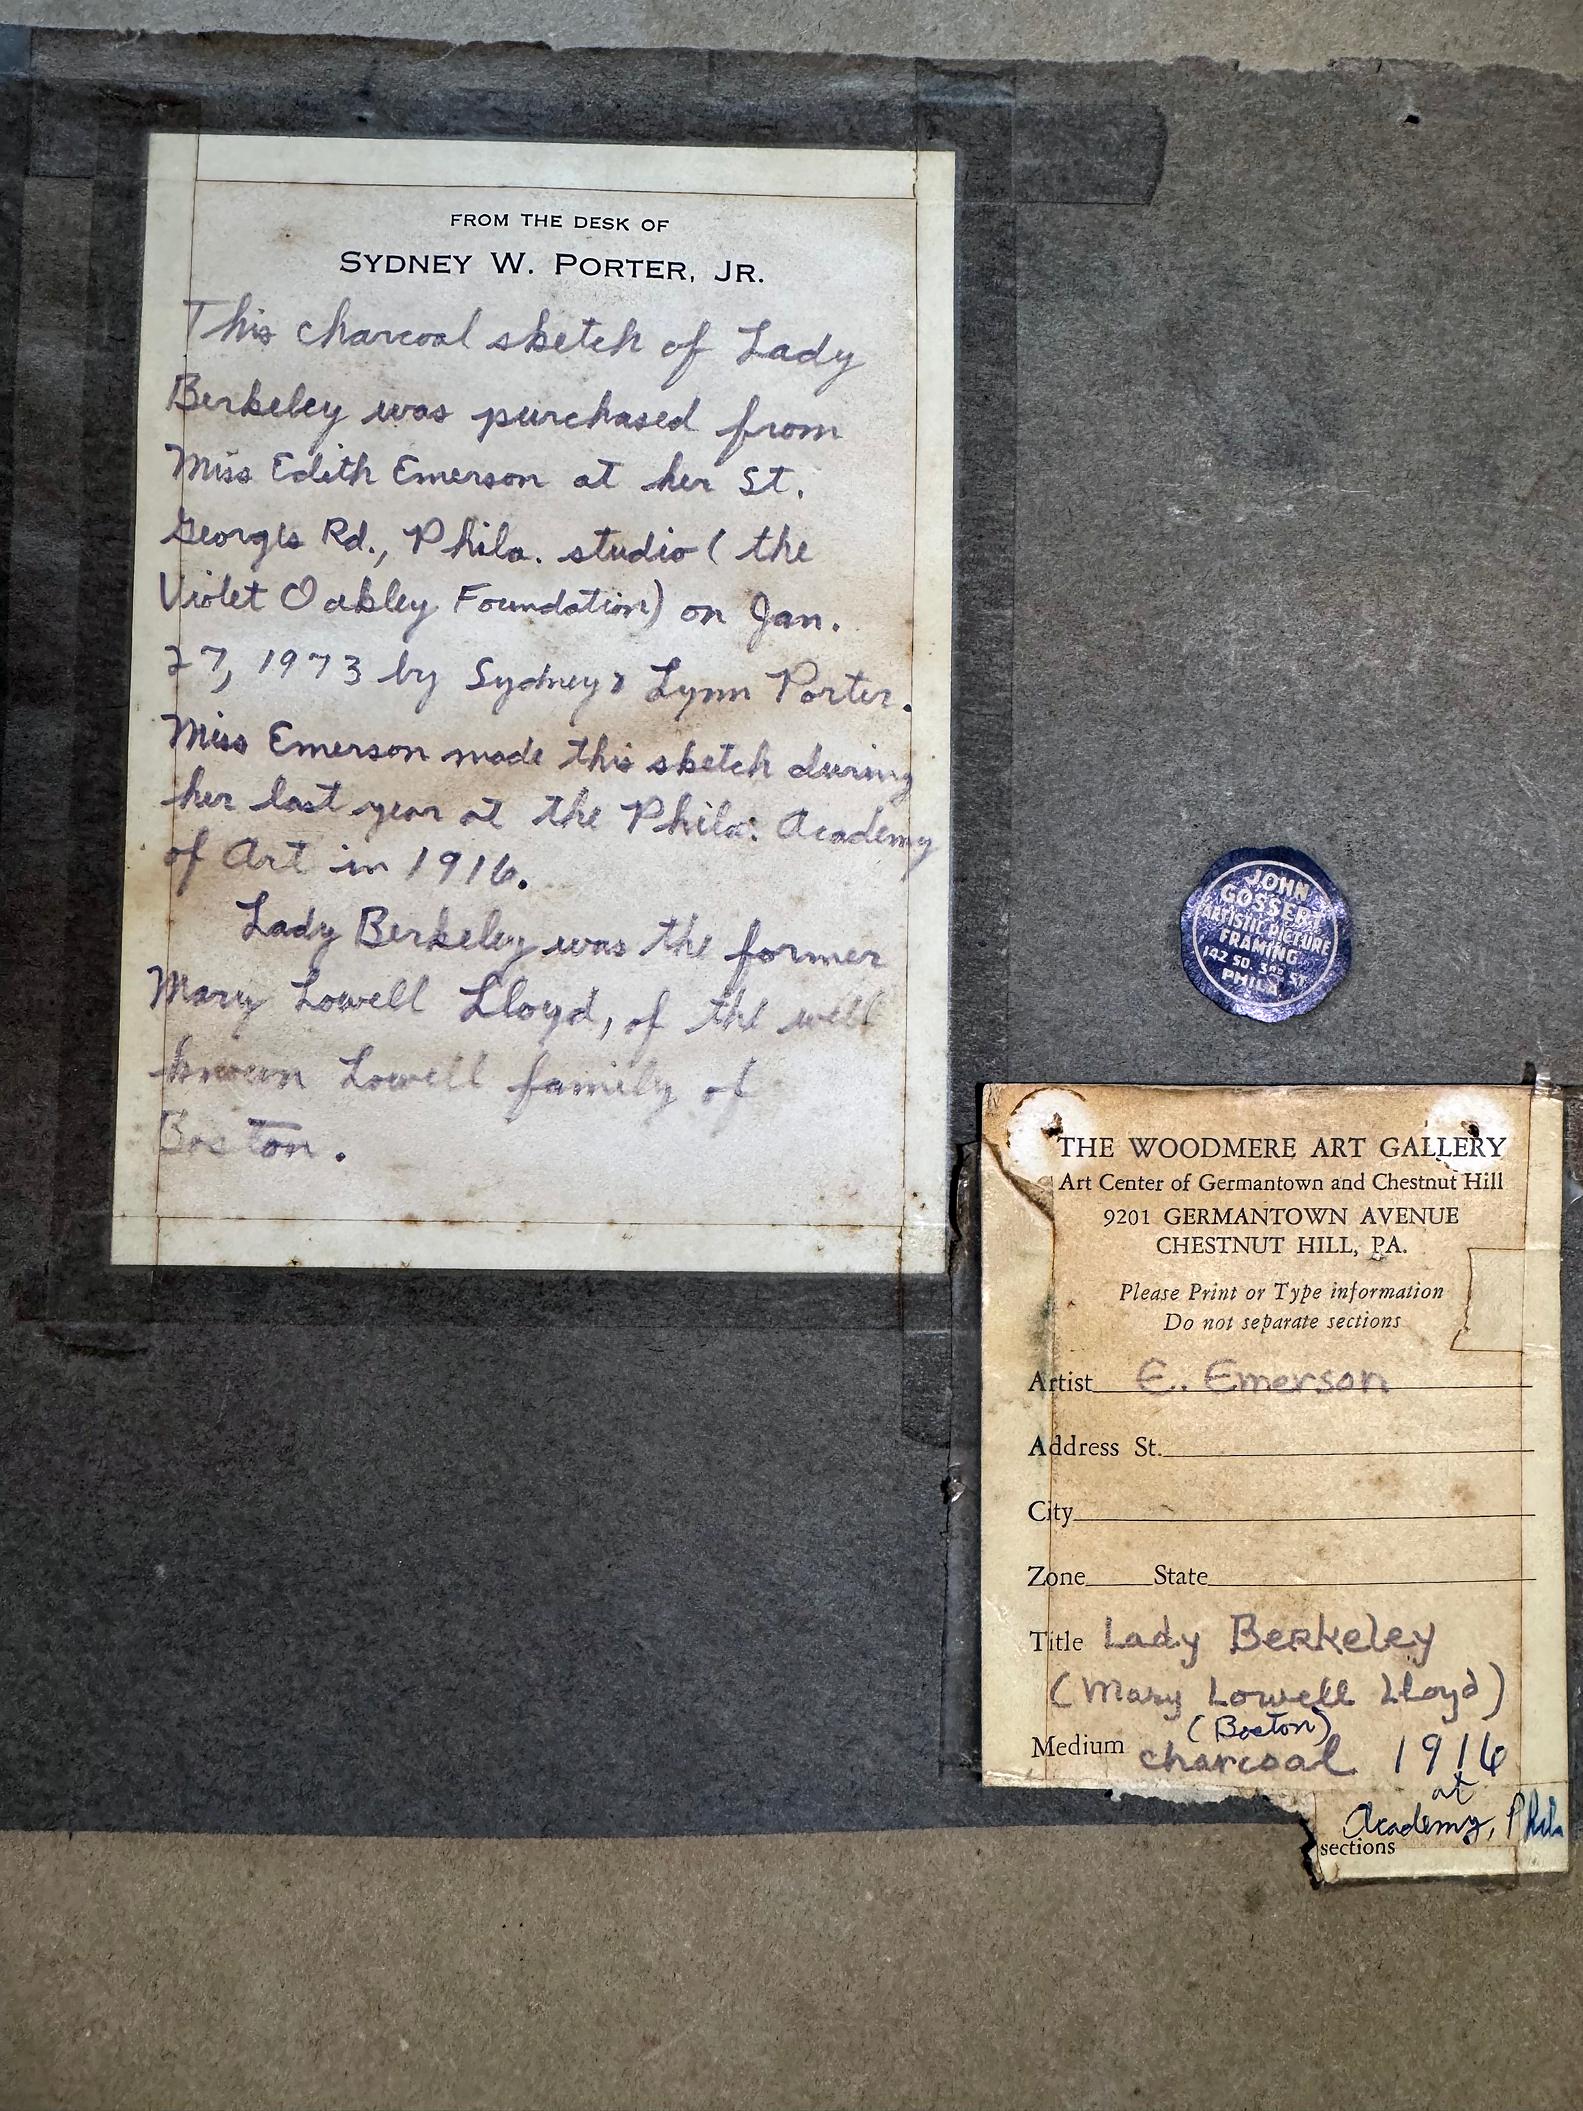 FROM THE DESK OF
SYDNEY W. PORTER, JR.
This charcoal sketch of Lady
Berkeley was purchased from
Miss Edith Emerson at her St.
Georges Rd., Phila. studio (the
Violet Oakley Foundation) on Jan.
27, 1973 by Sydney & Lynn Porter.
Miss Emerson made this sketch during
her last year at the Phila. Academy
of Art in 1916.
Lady Berkeley was the former
Mary Lowell Lloyd, of the well
known Lowell family of
Boston.
JOHN
GOSSERT
ARTISTIC PICTURE
FRAMING
142 SO. 3RD ST.
PHILA.
THE WOODMERE ART GALLERY
Art Center of Germantown and Chestnut Hill
9201 GERMANTOWN AVENUE
CHESTNUT HILL, PA.
Please Print or Type information
Do not separate sections
Artist E. Emerson
Address St.
City
Zone State
Title Lady Berkeley
(Mary Lowell Lloyd)
(Boston)
Medium charcoal 1916
at
Academy, Phila
sections